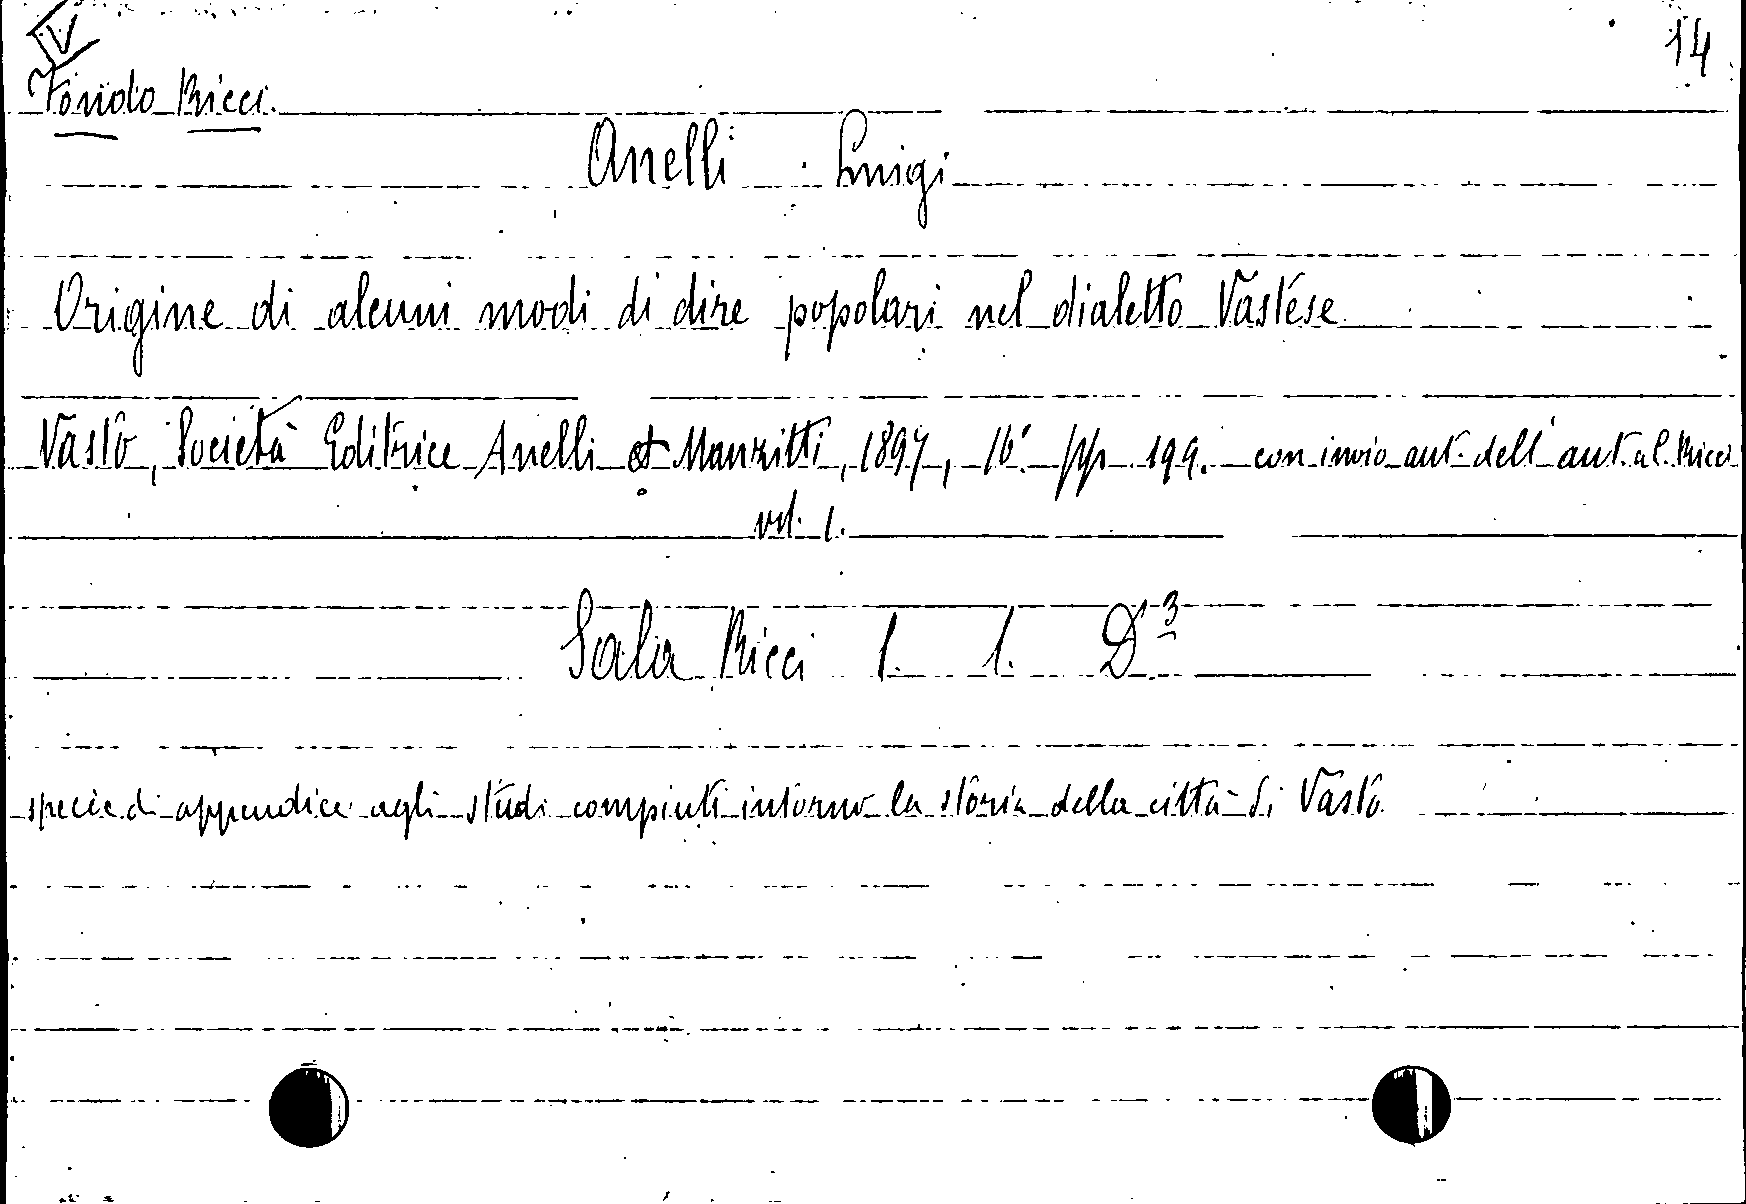 14
Fondo Ricci.
Anelli Luigi
Origine di alcuni modi di dire popolari nel dialetto Vastese
Vasto, Società Editrice Anelli & Manzitti, 1897, 16° pp 199. con invio aut. dell'aut. al Ricci
vol. 1.
Sala Ricci 1. 1. D³
specie di appendice agli studi compiuti intorno la storia della città di Vasto